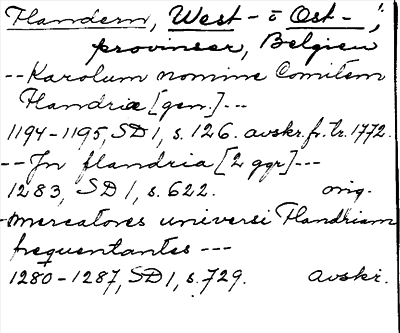 Flandern, West- o Ost-,
provinser, Belgien
--Karolum nomine Comitem
Flandriæ [gen.]---
1194-1195, SD 1, s. 126. avskr. fr. tr. 1772.
--In flandria [2 ggr]---
1283, SD 1, s. 622. orig.
-mercatores universi Flandriam
frequentantes ---
1280-1287, SD 1, s. 729. avskr.